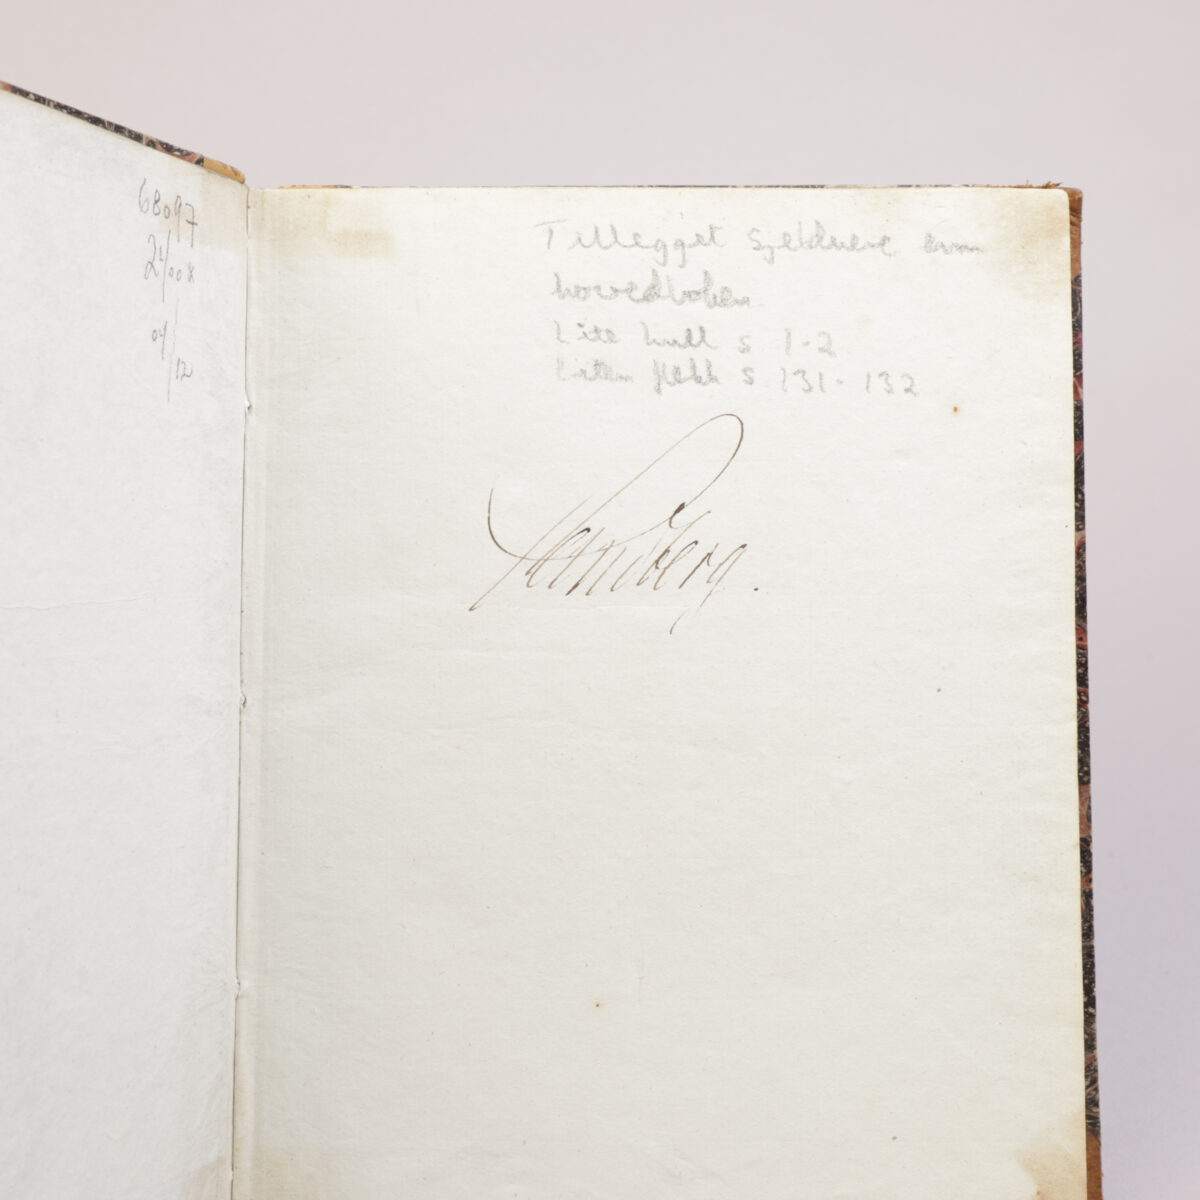 68097
24/008
04/12
Tillegget sjeldnere enn
hovedboken
Lite hull s 1-2
Liten flekk s. 131-132